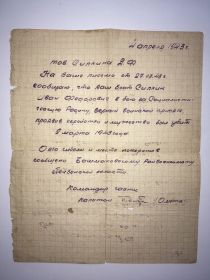 4 апреля 1943 г.
тов Силкина З.Ф.
На Ваше письмо от 27.02.43 г.
сообщаю, что ваш брат Силкин
Иван Федорович в бою за Социалистическую
Родину, верный воинской присяге,
проявив геройство и мужество был убит
в марте 1943 года.
О его гибели и место погребения
сообщено Башмаковскому Райвоенкомату
Пензенской области
Командир части
капитан